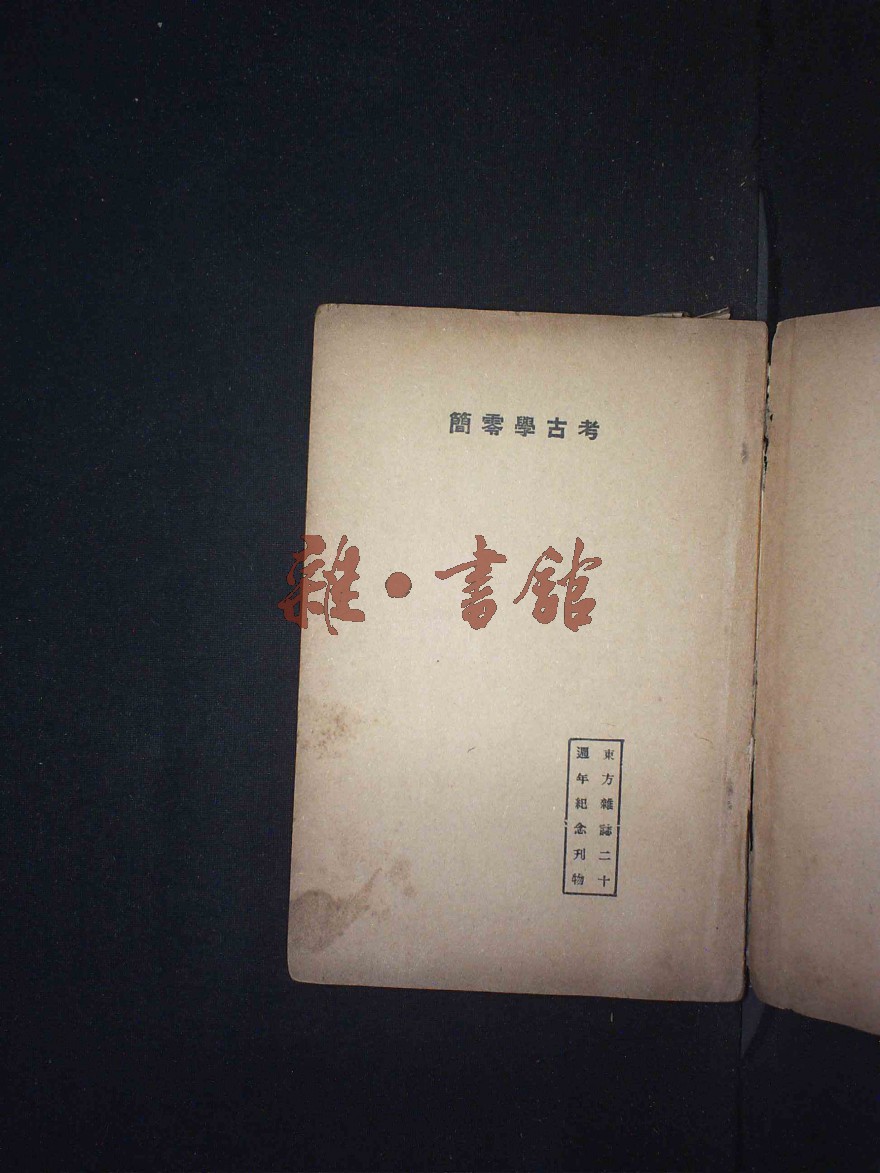 考古學零簡
雜·書館
東方雜誌二十
週年紀念刊物